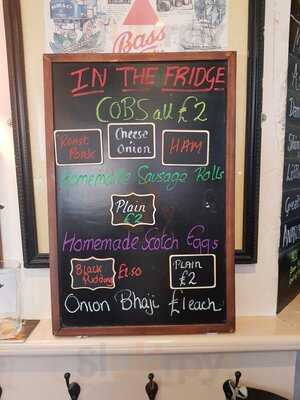 Bass
IN THE FRIDGE
COBS all £2
Roast Pork
Cheese & Onion
HAM
Homemade Sausage Rolls
Plain £2
Homemade Scotch Eggs
Black Pudding £1.50
PLAIN £2
Onion Bhaji £1 each